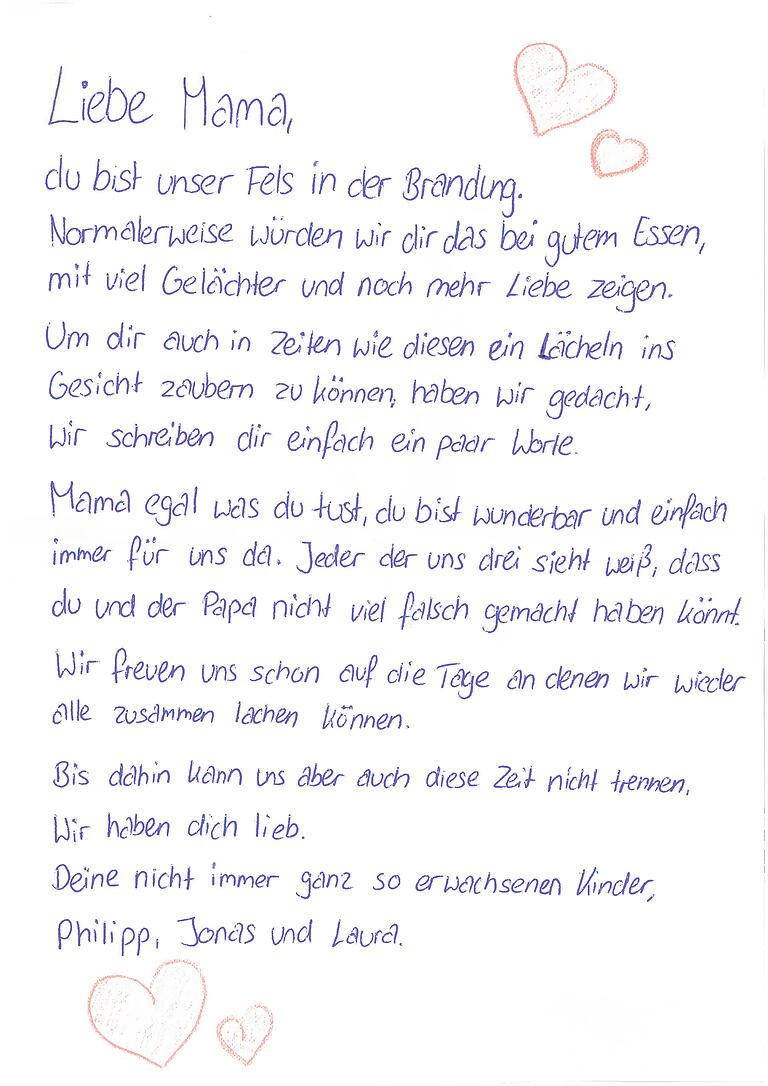 Liebe Mama,
du bist unser Fels in der Brandung.
Normalerweise würden wir dir das bei gutem Essen,
mit viel Gelächter und noch mehr Liebe zeigen.
Um dir auch in Zeiten wie diesen ein Lächeln ins
Gesicht zaubern zu können, haben wir gedacht,
Wir schreiben dir einfach ein paar Worte.
Mama egal was du tust, du bist wunderbar und einfach
immer für uns da. Jeder der uns drei sieht weiß, dass
du und der Papa nicht viel falsch gemacht haben könnt.
Wir freuen uns schon auf die Tage an denen wir wieder
alle zusammen lachen können.
Bis dahin kann uns aber auch diese Zeit nicht trennen,
Wir haben dich lieb.
Deine nicht immer ganz so erwachsenen Kinder,
Philipp, Jonas und Laura.